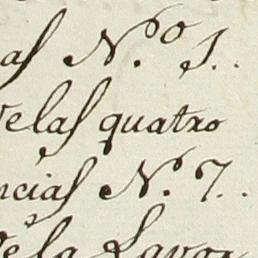 as N.º 1..
elas quatro
ncias N. 7..
de la Lavor